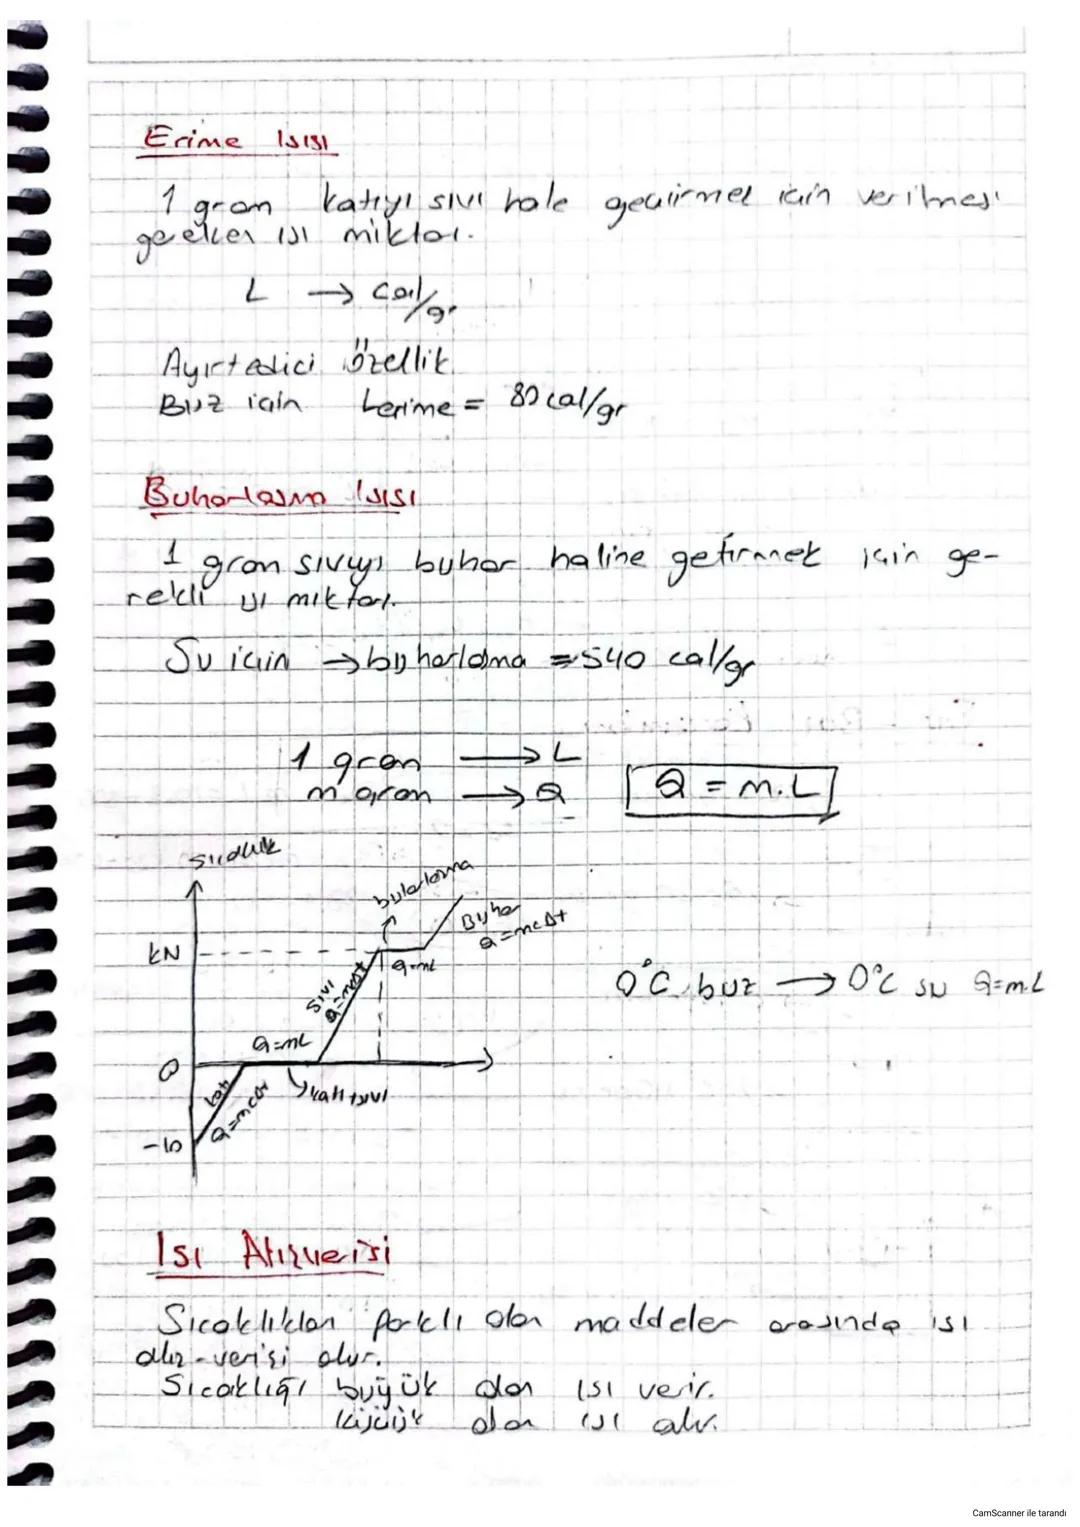 Erime Isısı
1 gram katıyı sıvı hale geçirmek için verilmesi
gereken ısı miktarı.
L → cal/gr
Ayırt edici özellik.
Buz için Lerime = 80 cal/gr
Buharlaşma Isısı
1 gram sıvıyı buhar haline getirmek için ge-
rekli ısı miktarı.
Su için → buharlaşma = 540 cal/gr
1 gram → L
m gram → Q
Q = m.L
Sıcaklık
buharlaşma
Buhar
Q=mcΔt
KN
Q=mL
Sıvı
Q=mcΔt
0°C buz → 0°C su Q=m.L
Q=mL
0
Katı
Q=mcΔt
katı+sıvı
-10
Isı Alışverişi
Sıcaklıkları farklı olan maddeler arasında ısı
alış-verişi olur.
Sıcaklığı büyük olan ısı verir.
küçük olan ısı alır.
CamScanner ile tarandı